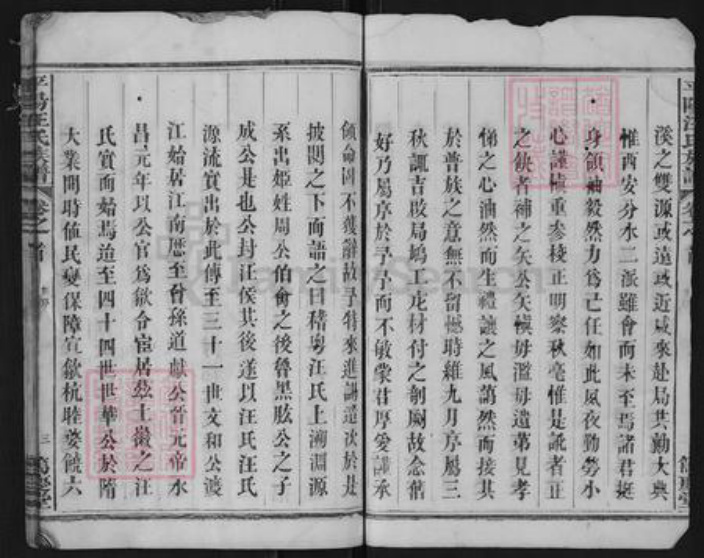 平陽汪氏族譜 卷之首
溪之雙源或遠或近咸來赴局共勷大典
惟西安分水二派雖會而未至焉諸君挺
身領袖毅然力為己任如此夙夜勤勞小
心謹慎重參校正明察秋毫惟是訛者正
之缺者補之矣公矣慎毋濫毋遺第見孝
悌之心油然而生禮讓之風藹然而接其
於普族之意無不留憾時維九月序屬三
秋諏吉啟局鳩工庀材付之剞劂故念舊
好乃屬序於予予而不敏蒙君厚愛謙承
傾命固不獲辭故予特來進謁造次於是
披閱之下而語之曰稽粵汪氏上溯淵源
系出姬姓周公伯禽之後魯黑肱公之子
成公是也公封汪侯其後遂以汪氏汪氏
源流實出於此傳至三十一世文和公渡
江始居江南歷至曾孫道獻公晉元帝永
昌元年以公官為歙令宦居茲土徽之汪
氏實而始焉迨至四十四世世華公於隋
大業間時值民變保障宣歙杭睦婺饒六
平陽汪氏族譜 卷之首 三
FamilySearch